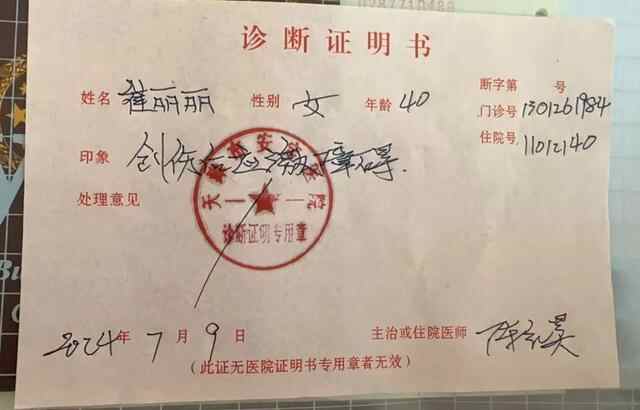 诊断证明书
断字第 号
姓名 崔丽丽 性别 女 年龄 40 门诊号 1301261984
住院号 11012140
印象 创伤后应激障碍.
处理意见
诊断证明专用章
2024年 7 月 9 日 主治或住院医师
(此证无医院证明书专用章者无效)